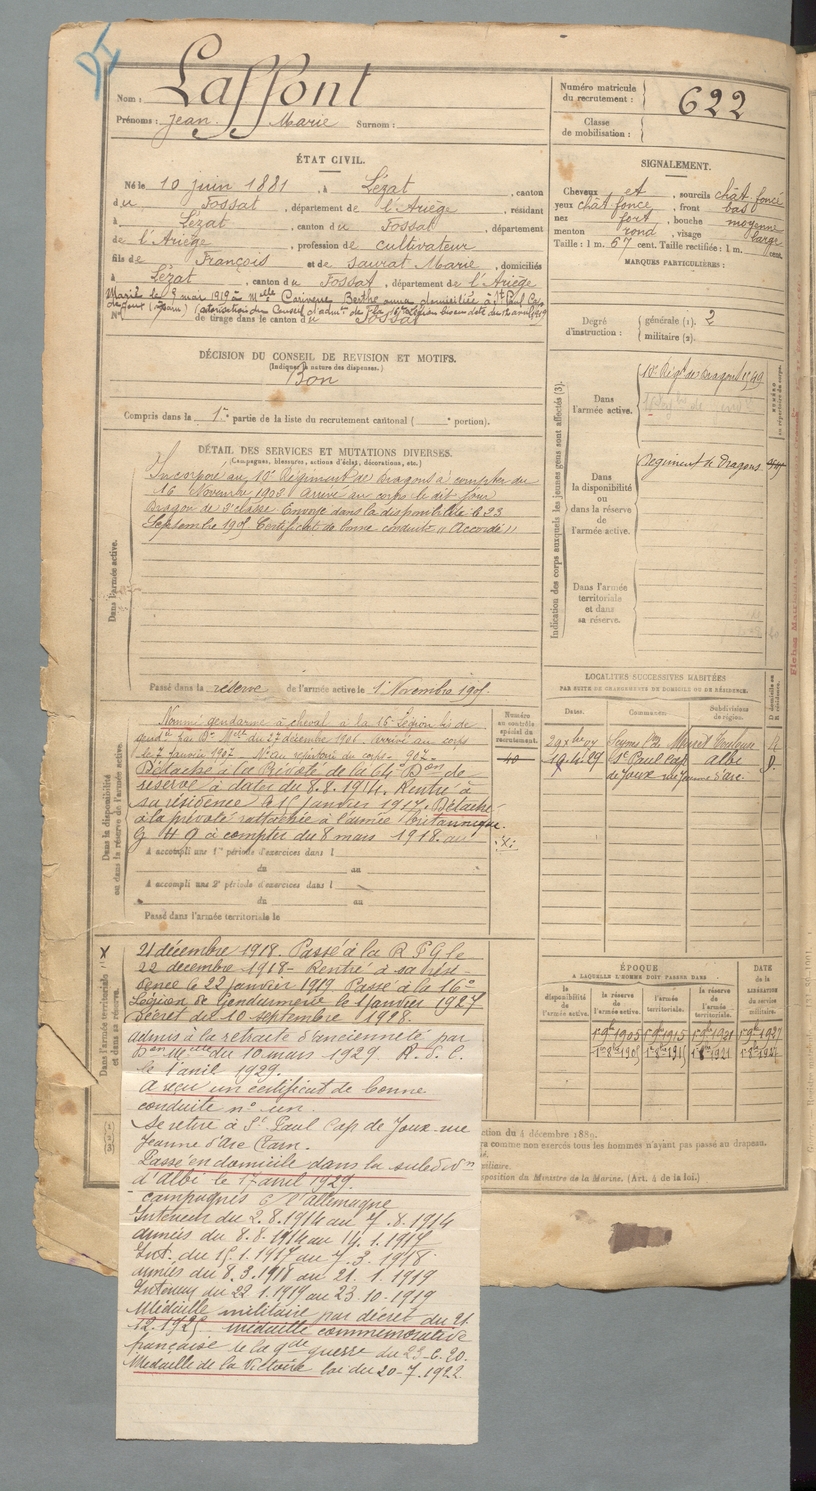 Laffont
Nom :
Prénoms : Jean Marie Surnom :
Numéro matricule du recrutement : 622
Classe de mobilisation :
ÉTAT CIVIL.
Né le 10 juin 1881, à Lézat, canton
du Fossat, département de l'Ariège, résidant
à Lézat, canton du Fossat, département
de l'Ariège, profession de cultivateur
fils de François et de Saurat Marie, domiciliés
à Lézat, canton du Fossat, département de l'Ariège
Marié le 9 mai 1919 à Melle Berthe domiciliée à St Paul Cap
de Joux (Tarn)
N° de tirage dans le canton du Fossat
SIGNALEMENT.
Cheveux et, sourcils chât. foncé
yeux chât. foncé, front bas
nez fort, bouche moyenne
menton rond, visage large
Taille : 1 m. 67 cent. Taille rectifiée : 1 m. cent.
MARQUES PARTICULIÈRES :
Degré d'instruction : générale (1). 2
militaire (2).
DÉCISION DU CONSEIL DE REVISION ET MOTIFS.
(Indiquer la nature des dispenses.)
Bon
Compris dans la 1re partie de la liste du recrutement cantonal ( e portion).
DÉTAIL DES SERVICES ET MUTATIONS DIVERSES.
(Campagnes, blessures, actions d'éclat, décorations, etc.)
Incorporé au 10e Régiment de Dragons à compter du
16 Novembre arrivé au corps le dit jour
Dragon de 2e classe. Envoyé dans la disponibilité le 23
Septembre 1905 Certificat de bonne conduite "Accordé"
Dans l'armée active.
Passé dans la réserve de l'armée active le 1er Novembre 1905.
Indication des corps auxquels les jeunes gens sont affectés (3).
Dans l'armée active.
10e Régt de Dragons
Dans la disponibilité ou dans la réserve de l'armée active.
Régiment de Dragons
Dans l'armée territoriale et dans sa réserve.
Dans la disponibilité ou dans la réserve de l'armée active.
Nommé gendarme à cheval à la 16e Légion
du 27 décembre 1906. arrivé au corps
le 7 janvier 1907 No au répertoire du corps
Détaché à la Prévôté de la 64e Don de
réserve à dater du 8.8.1914. Rentré à
sa résidence le 15 janvier 1917. Détaché
à la prévôté rattachée à l'armée Britannique
G H Q à compter du 8 mars 1918. au
A accompli une 1re période d'exercices dans l
du au
A accompli une 2e période d'exercices dans l
du au
Passé dans l'armée territoriale le
Numéro au contrôle spécial du recrutement.
LOCALITÉS SUCCESSIVES HABITÉES
PAR SUITE DE CHANGEMENTS DE DOMICILE OU DE RÉSIDENCE.
Dates. Communes. Subdivisions de région. D. domicile ou R. résidence.
Muret Toulouse R
St Paul Cap Albi D.
de Joux rue Jeanne d'Arc
Dans l'armée territoriale et dans sa réserve.
21 décembre 1918. Passé à la R P G le
22 décembre 1918 - Rentré à sa rési-
dence le 22 janvier 1919 Passé à la 16e
Légion de Gendarmerie le 1 janvier 1927
Décret du 10 septembre
admis à la retraite d'ancienneté par
Don Mlle du 10 mars 1929.
le 1 avril 1929.
A reçu un certificat de bonne
conduite n° un.
Se retire à St Paul Cap de Joux rue
Jeanne d'Arc Tarn.
Passé en domicile dans la subdivon
d'Albi le 17 avril 1929.
Campagnes c/ l'Allemagne
Intérieur du 2.8.1914 au 7.8.1914
armées du 8.8.1914 au 14.1.1917
Int. du 15.1.1917 au 7.3.1918
armées du 8.3.1918 au 21.1.1919
Intérieur du 22.1.1919 au 23.10.1919
Médaille militaire par décret du 21.
12.1925 médaille commémorative
française de la gde guerre du 23.6.20.
Médaille de la Victoire loi du 20-7.1922
ÉPOQUE
A LAQUELLE L'HOMME DOIT PASSER DANS
la disponibilité de l'armée active. la réserve de l'armée active. l'armée territoriale. la réserve de l'armée territoriale.
DATE de la LIBÉRATION du service militaire.
1er 9bre 1905 1er 9bre 1915 1er 9bre 1921 1er 9bre 1927
ction du 4 décembre 1889.
comme non exercés tous les hommes n'ayant pas passé au drapeau.
sposition du Ministre de la Marine. (Art. 4 de la loi.)